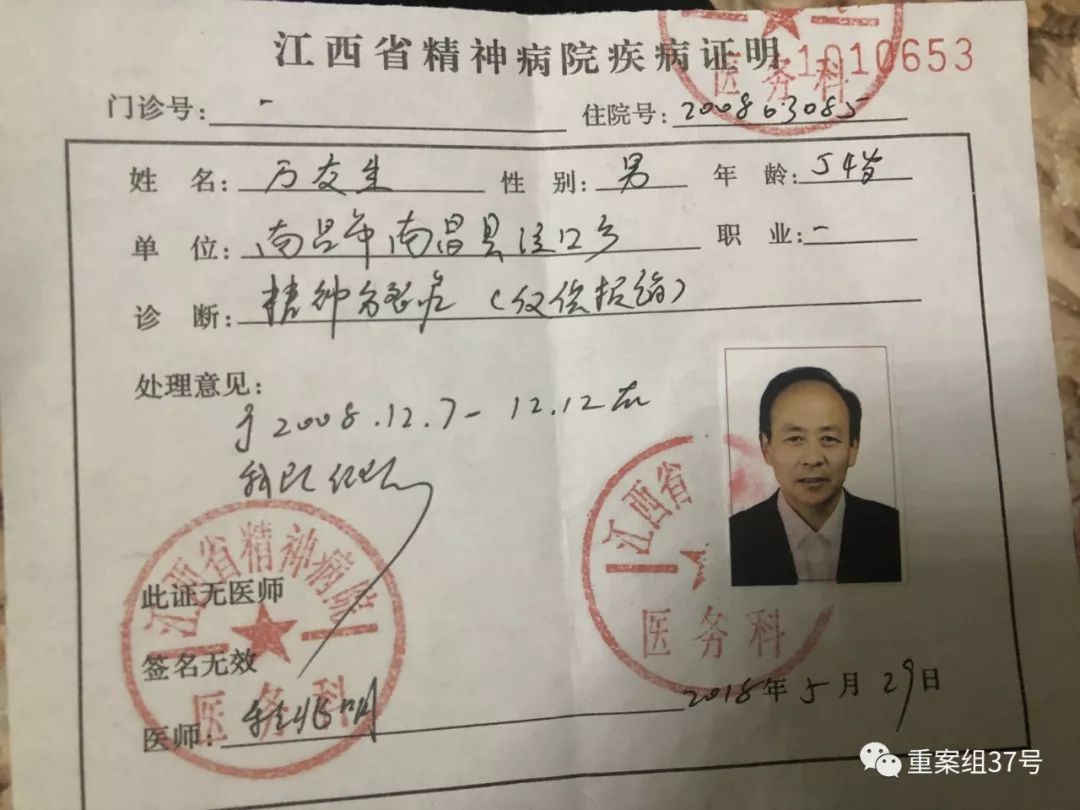 江西省精神病院疾病证明
1010653
医务科
门诊号: - 住院号: 200863085
姓 名: 万友生 性 别: 男 年 龄: 54岁
单 位: 南昌市南昌县泾口乡 职 业: -
诊 断: 精神分裂症(仅供报销)
处理意见:
于2008.12.7-12.12在
我院住院
江西省
医务科
江西省精神病院
医务科
此证无医师
签名无效
医师:
2018年5月29日
重案组37号